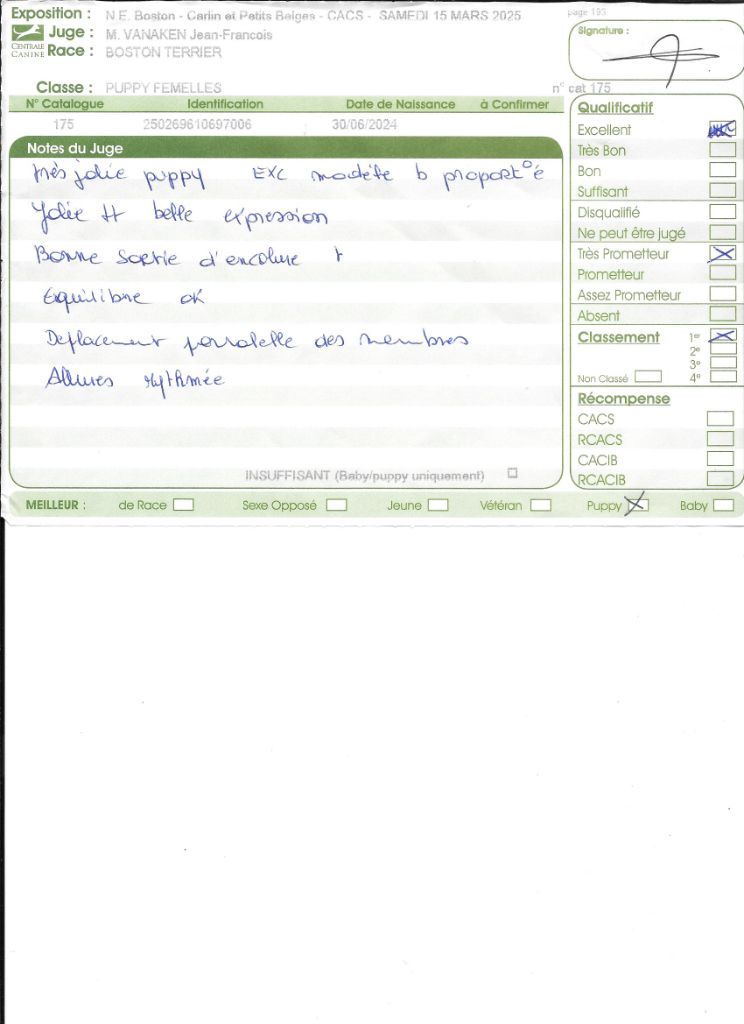 Exposition : N.E. Boston - Carlin et Petits Belges - CACS - SAMEDI 15 MARS 2025
page 193
CENTRALE CANINE
Juge : M. VANAKEN Jean-Francois
Race : BOSTON TERRIER
Signature :
Classe : PUPPY FEMELLES
n° cat 175
N° Catalogue Identification Date de Naissance à Confirmer
175 250269610697006 30/06/2024
Notes du Juge
très jolie puppy EXC modèle b proport° é
Jolie tt belle expression
Bonne Sortie d'encolure
Equilibre ok
Deplacement parralelle des membres
Allures rythmée
INSUFFISANT (Baby/puppy uniquement)
Qualificatif
Excellent
Très Bon
Bon
Suffisant
Disqualifié
Ne peut être jugé
Très Prometteur
Prometteur
Assez Prometteur
Absent
Classement 1er
2e
3e
Non Classé 4e
Récompense
CACS
RCACS
CACIB
RCACIB
MEILLEUR : de Race Sexe Opposé Jeune Vétéran Puppy Baby